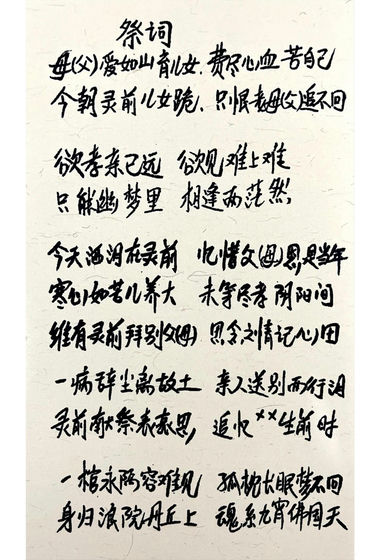 祭词
母(父)爱如山育儿女.费尽心血苦自己
今朝灵前儿女跪.只恨老母(父)追不回
欲孝亲已远 欲见难上难
只能幽梦里 相逢两茫然
今天洒泪在灵前 忆惜父(母)恩,是当年
寒心如苦儿养大 未等尽孝阴阳间
维有灵前拜别父(母) 恩念之情记心田
一病辞尘离故土 亲人送别两行泪
灵前献祭表哀思, 追忆××生前时
一棺永隔容难见 孤枕长眠梦不回
身归浪院丹丘上 魂系九宵佛国天